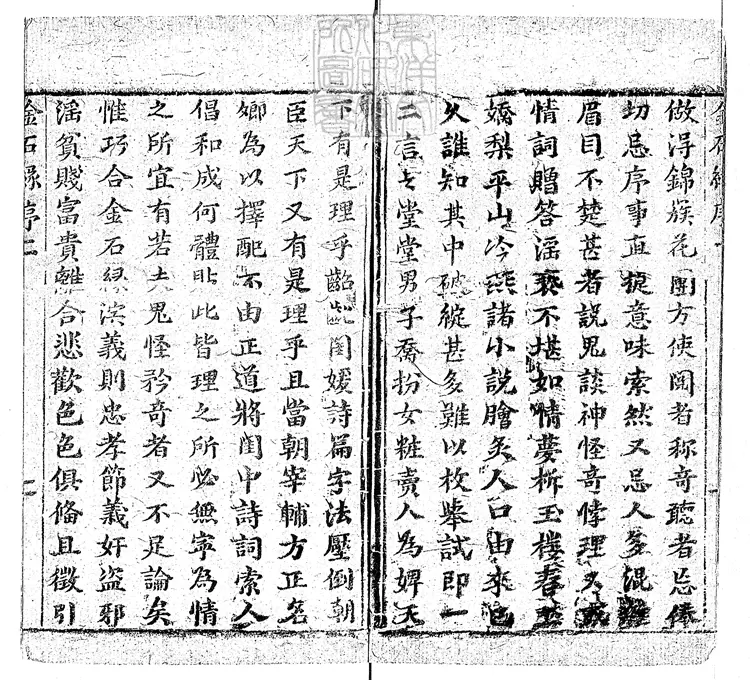 金石緣序
做得錦簇花團方使閱者称奇聽者忘倦
切忌序事直捷意味索然又忌人多混雜
眉目不楚甚者說鬼談神怪竒悖理又或
情詞贈答淫褻不堪如情夢柝玉樓春玉
嬌梨平山冷燕諸小說膾炙人口由來已
久誰知其中破綻甚多難以枚舉試即一
二言之堂堂男子喬扮女粧賣人為婢天
下有是理乎齠齔閨媛詩篇字法壓倒朝
臣天下又有是理乎且當朝宰輔方正名
卿為以擇配不由正道將閨中詩詞索人
倡和成何體此皆理之所必無寧為情
之所宜有若夫鬼怪矜奇者又不足論矣
惟巧合金石緣演義則忠孝節義奸盜邪
淫貧賤富貴離合悲歡色色俱備且徵引
金石緣序 二